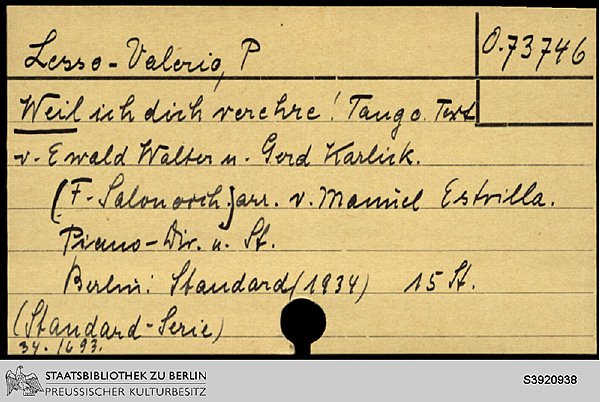 Lesso-Valerio, P
O.73746
Weil ich dich verehre! Tango. Text
v. Ewald Walter u. Gerd Karlick.
[F. Salonorch.] arr. v. Manuel Estrilla.
Piano-Dir. u. St.
Berlin: Standard (1934) 15 St.
(Standard-Serie)
34. 1693.
STAATSBIBLIOTHEK ZU BERLIN
PREUSSISCHER KULTURBESITZ
S3920938